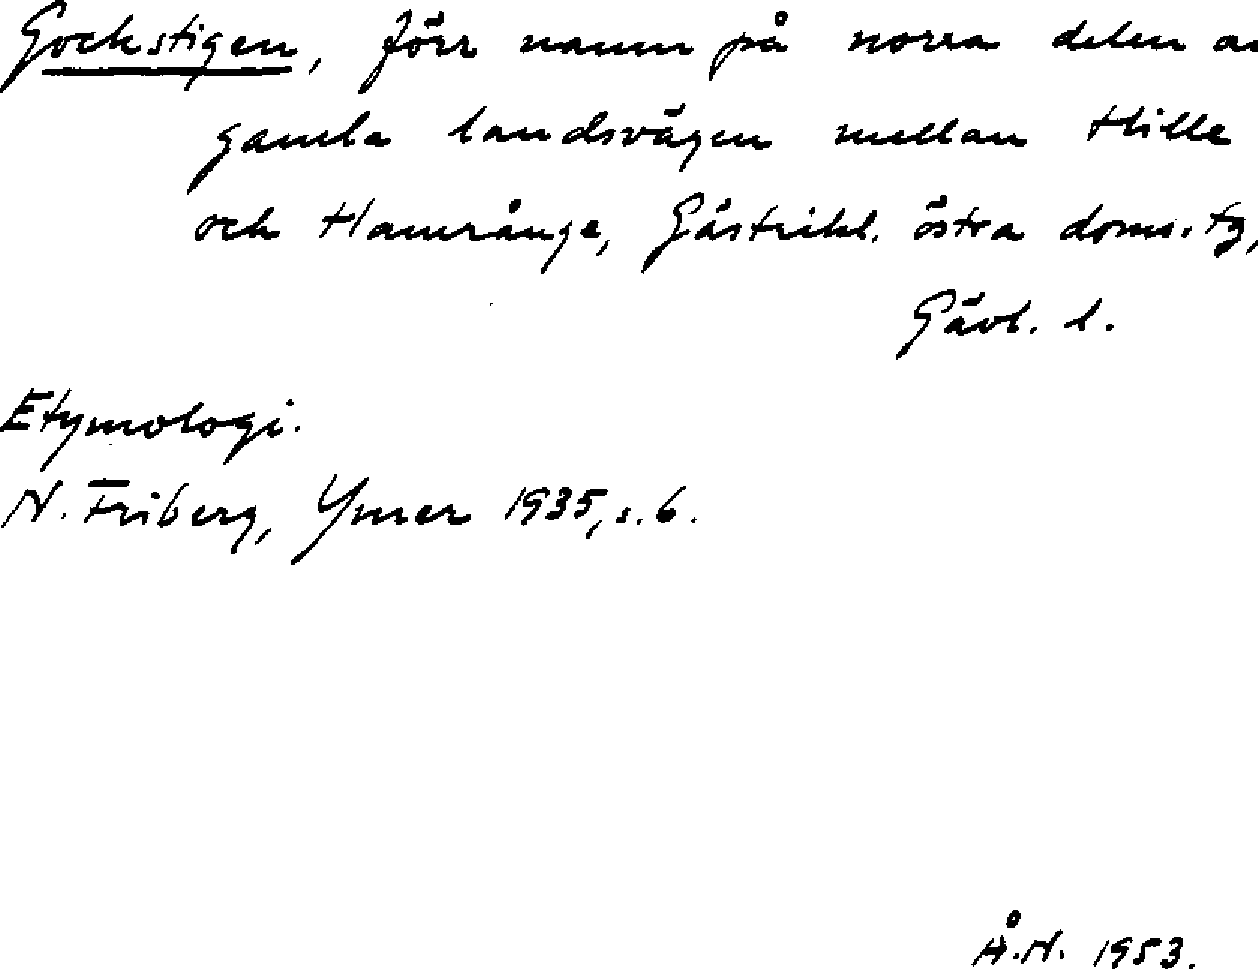 Gockstigen, förr namn på norra delen av
gamla landsvägen mellan Hille
och Hamrånge, Gästrikl. östra doms. tg,
Gävl. l.
Etymologi.
N. Friberg, Ymer 1935, s. 6.
Å.N. 1953.